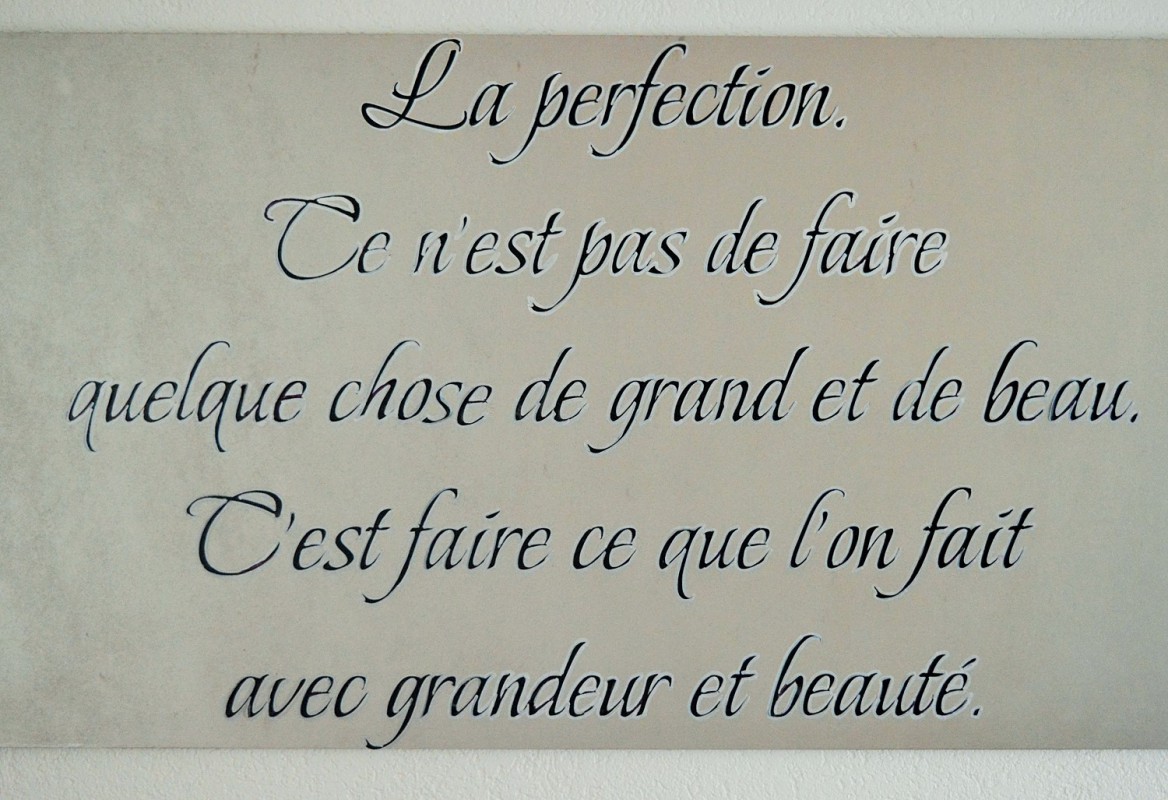 La perfection.
Ce n'est pas de faire
quelque chose de grand et de beau.
C'est faire ce que l'on fait
avec grandeur et beauté.